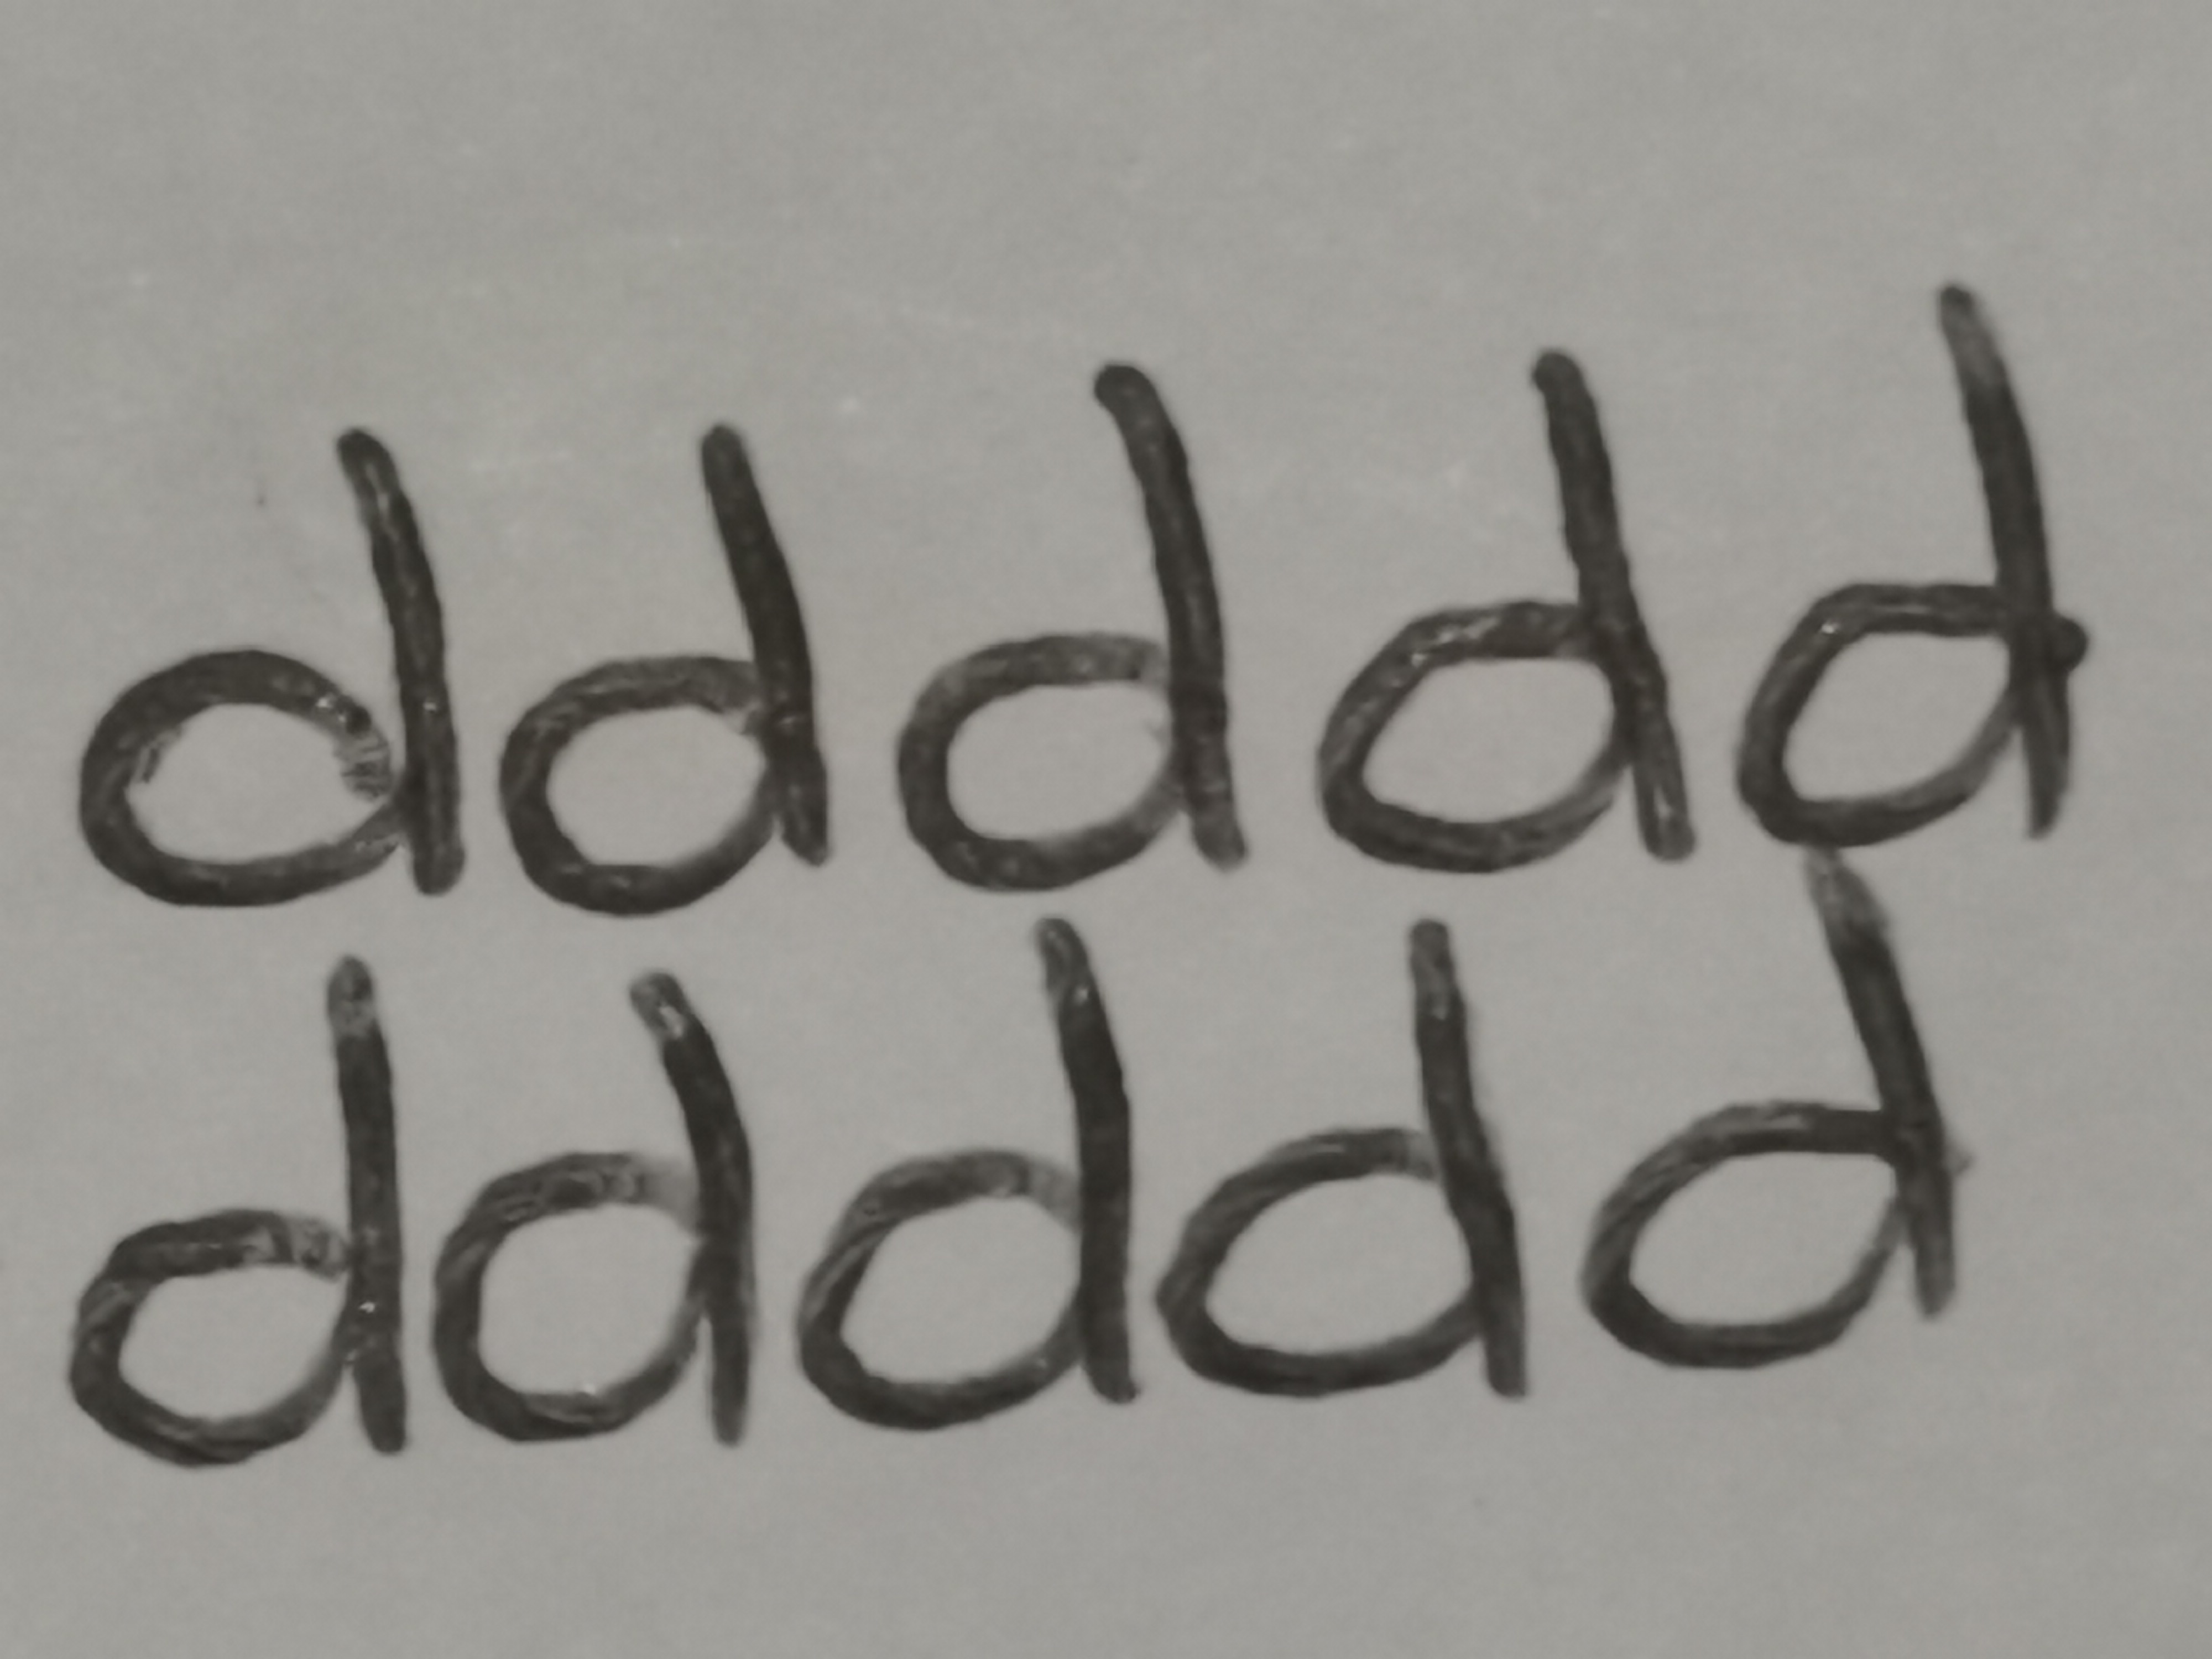 ddddd
ddddd